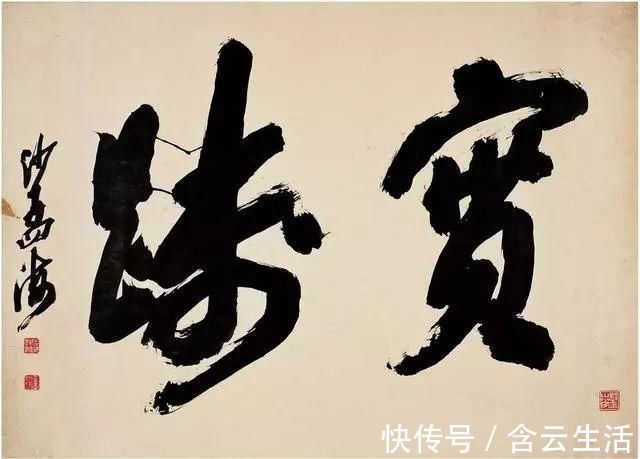 實踐
沙孟海
快传号 / 含云生活